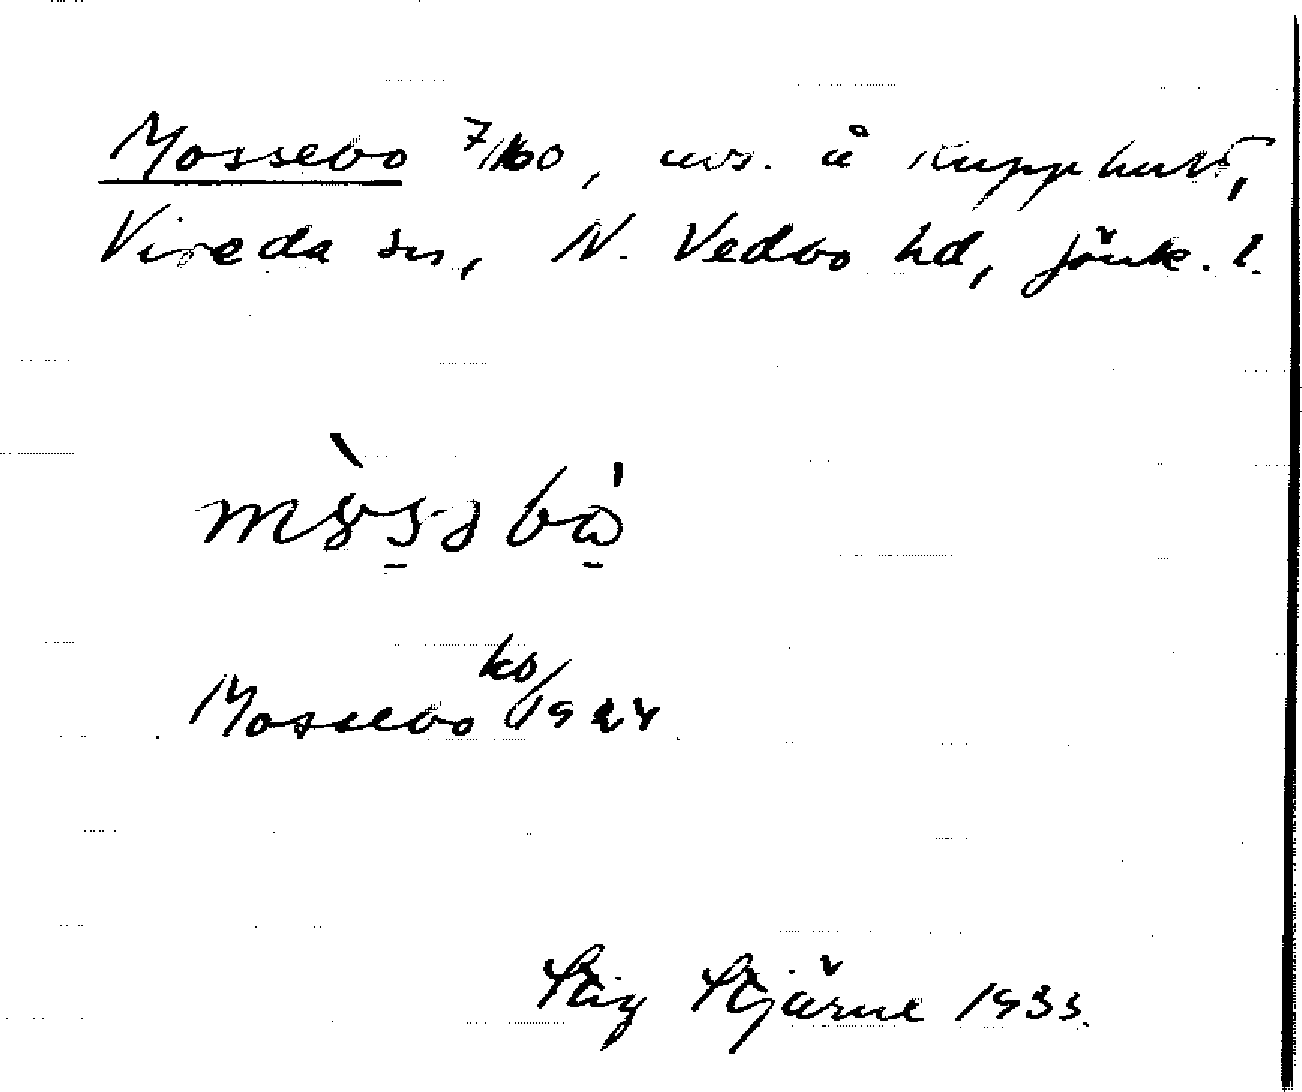 Mossebo 7/160, avs. å Kupphult,
Vireda sn, N. Vedbo hd, Jönk. l.
Mossebo ks/1924
Stig Stjärne 1933.